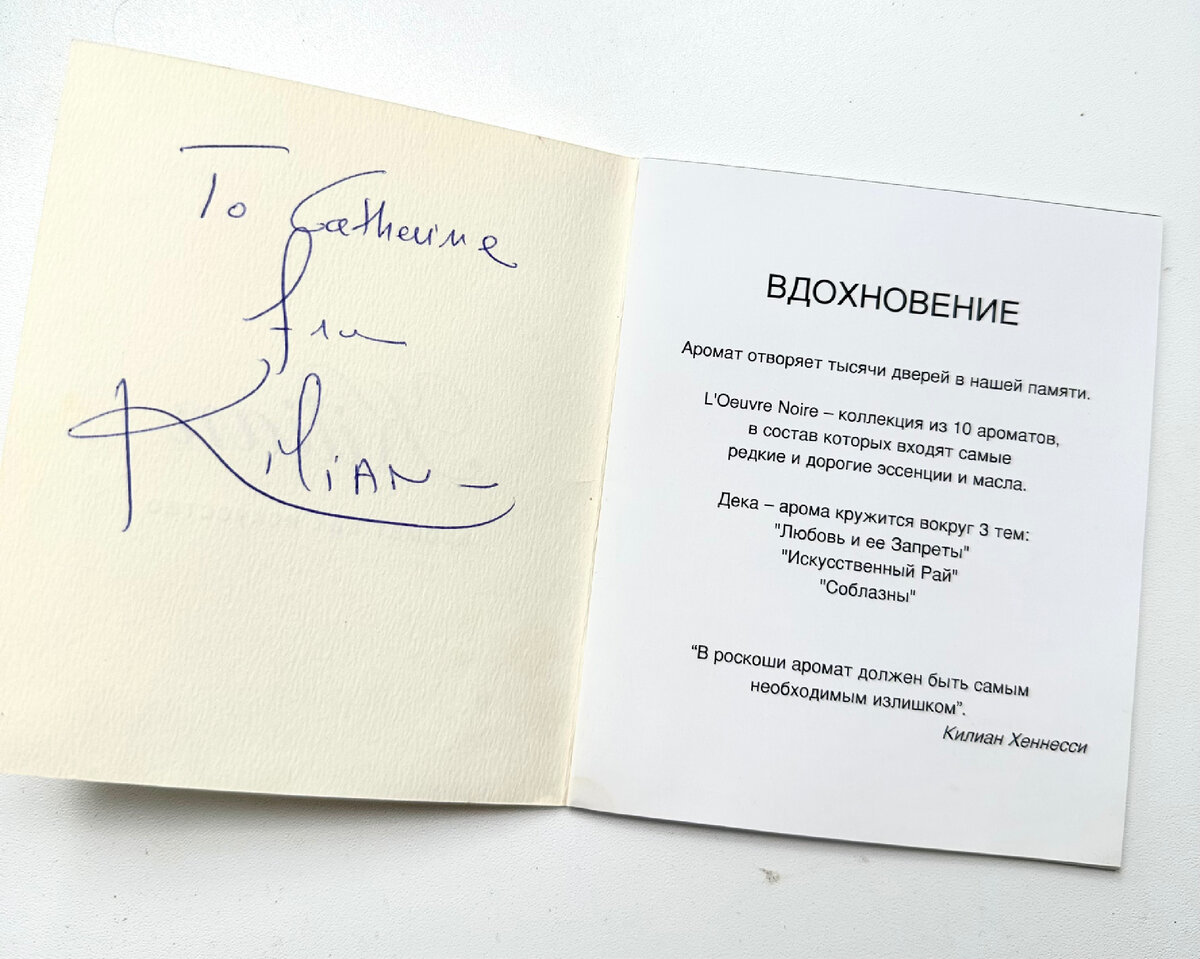 To Catherine
from
Kilian -
ВДОХНОВЕНИЕ
Аромат отворяет тысячи дверей в нашей памяти.
L'Oeuvre Noire – коллекция из 10 ароматов,
в состав которых входят самые
редкие и дорогие эссенции и масла.
Дека – арома кружится вокруг 3 тем:
"Любовь и ее Запреты"
"Искусственный Рай"
"Соблазны"
“В роскоши аромат должен быть самым
необходимым излишком”.
Килиан Хеннесси